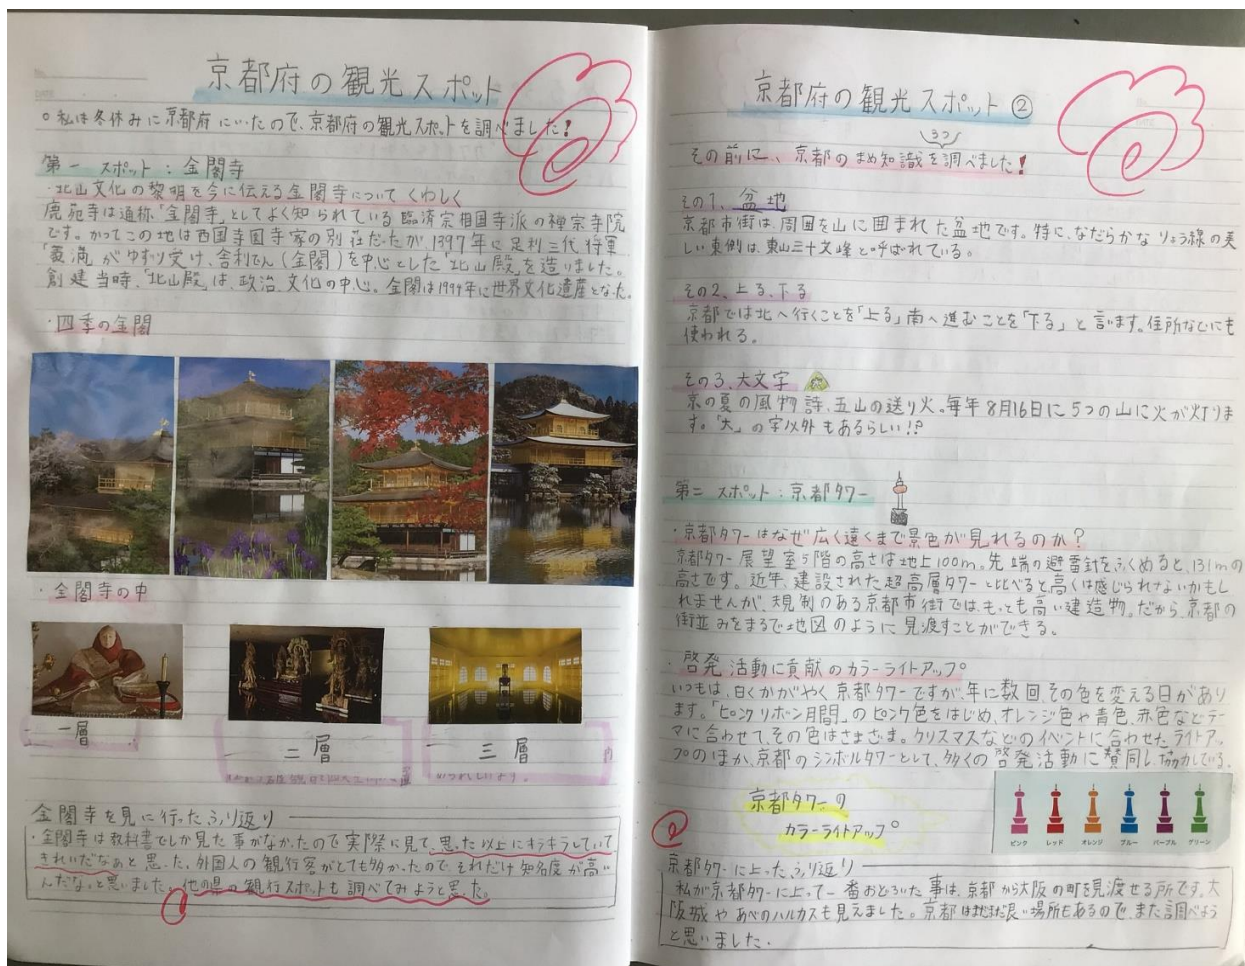 京都府の観光スポット
○私は冬休みに京都府にいったので、京都府の観光スポットを調べました!
第一 スポット:金閣寺
・北山文化の黎明を今に伝える金閣寺について くわしく
鹿苑寺は通称「金閣寺」としてよく知られている臨済宗相国寺派の禅宗寺院
です。かつてこの地は西国寺国寺家の別荘だったが1397年に足利三代将軍
「義満」がゆずり受け、舎利でん(金閣)を中心とした「北山殿」を造りました。
創建当時、「北山殿」は、政治、文化の中心。金閣は1994年に世界文化遺産となった。
・四季の金閣
・金閣寺の中
一層
二層
三層
金閣寺を見に行ったふり返り
・金閣寺は教科書でしか見た事がなかったので実際に見て、思った以上にキラキラしていて
きれいだなぁと思った。外国人の観行客がとても多かったので、それだけ知名度が高い
んだな。と思いました。他の県の観行スポットも調べてみようと思った。
京都府の観光スポット②
3つ
その前に、京都のまめ知識を調べました!
その1、盆地
京都市街は、周囲を山に囲まれた盆地です。特に、なだらかなりょう線の美
しい東側は、東山三十六峰と呼ばれている。
その2、上る、下る
京都では北へ行くことを「上る」南へ進むことを「下る」と言います。住所などにも
使われる。
その3、大文字
京の夏の風物詩、五山の送り火。毎年8月16日に5つの山に火が灯りま
す。「大」の字以外もあるらしい!?
第二 スポット:京都タワー
・京都タワーはなぜ広く遠くまで景色が見れるのか?
京都タワー展望室5階の高さは地上100m。先端の避雷針をふくめると、131mの
高さです。近年、建設された超高層タワーと比べると高くは感じられないかもし
れませんが、規制のある京都市街では、もっとも高い建造物。だから、京都の
街並みをまるで地図のように見渡すことができる。
・啓発活動に貢献のカラーライトアップ
いつもは、白くかがやく京都タワーですが、年に数回その色を変える日があり
ます。「ピンクリボン月間」のピンク色をはじめ、オレンジ色や青色、赤色などテー
マに合わせて、その色はさまざま。クリスマスなどのイベントに合わせたライトアッ
プのほか、京都のシンボルタワーとして、多くの啓発活動に賛同し、協力している。
京都タワーの
カラーライトアップ
ピンク レッド オレンジ ブルー パープル グリーン
京都タワーに上ったふり返り
私が京都タワーに上って一番おどろいた事は、京都から大阪の町を見渡せる所です。大
阪城やあべのハルカスも見えました。京都はまだまだ良い場所もあるので、また調べよう
と思いました。